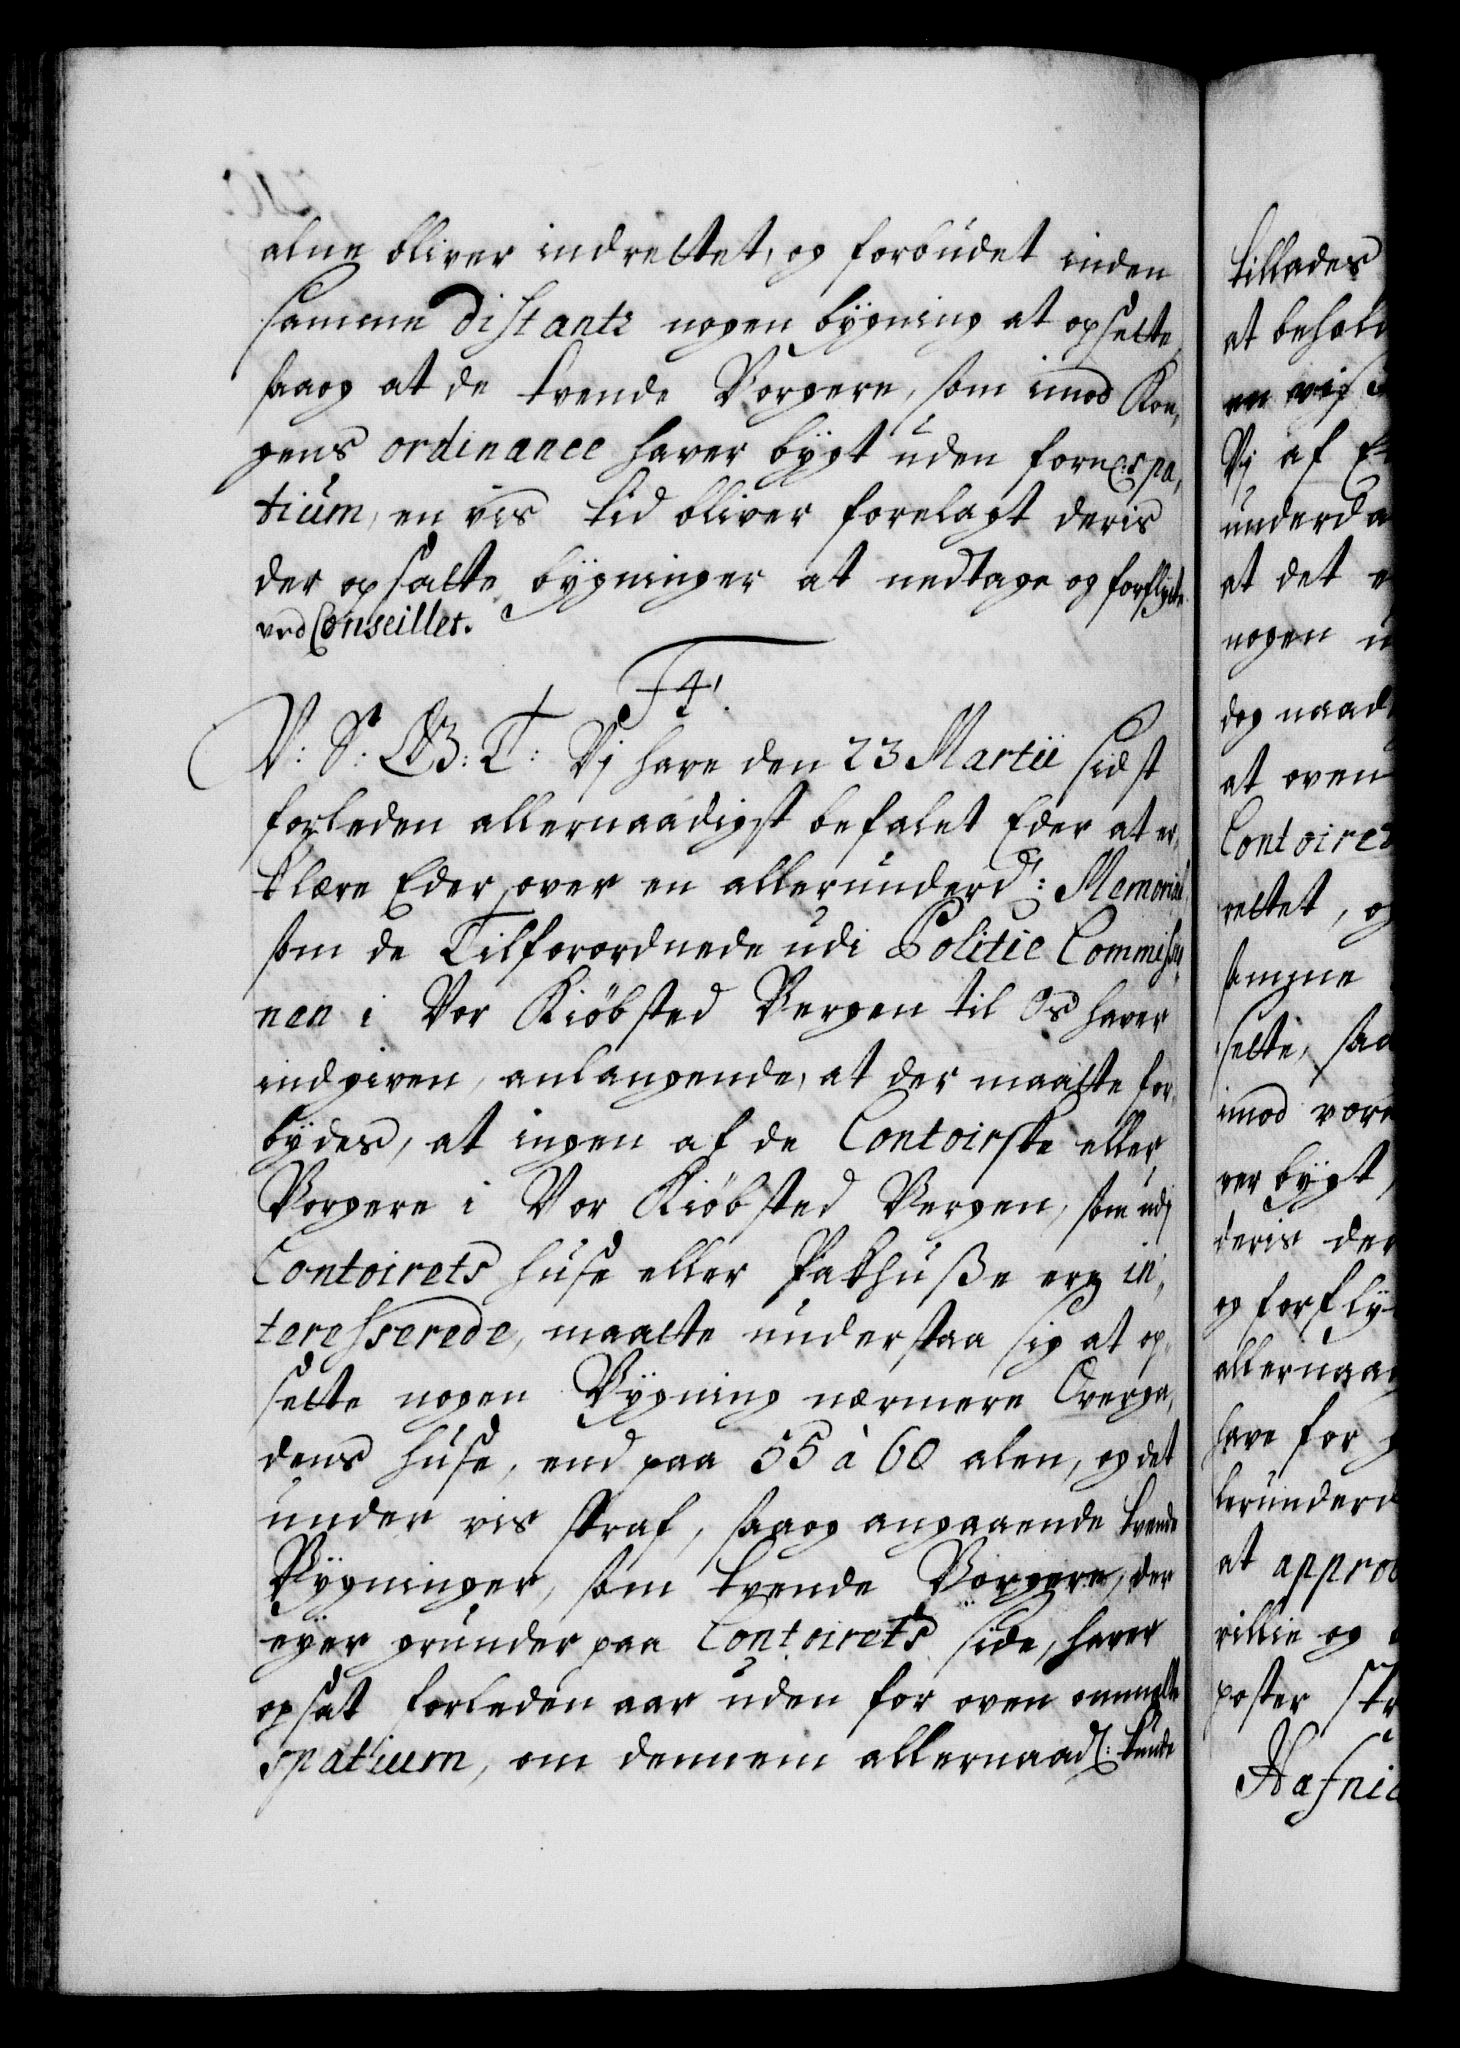 alne bliver indrettet, og forbudet inden
samme distants nogen bÿgning at opsette,
saaog at de tvende Borgere, som imod Kon,
gens ordinance haver bÿgt uden fornd: spa,
tium, en vis tid bliver forelagt deris
der opsatte bÿgninger at nedtage og forflÿtte.
ved Conseillet.
F 4.
V: S: G B: T: Vj have den 23 Martii sidst
forleden allernaadigst befalet Eder at er,
klære Eder over en allerunderd: Memorial
som de Tilforordnede udi Politie Commissio,
nen i Vor Kiøbsted Bergen til Os haver
indgiven, anlangende, at der maatte for,
bÿdes, at ingen af de Contoirske eller
Borgere i Vor Kiøbsted Bergen, som udj
Contoirets huse eller Pakhuße ere in,
teresserede, maatte understaa sig at op,
sette nogen Bÿgning nærmere Overga,
dens huse, end paa 55 à 60 alen, og det
under vis straf, saaog angaaende tvende
Bÿgninger, som tvende Borgere, der
eÿer grunder paa Contoirets side, haver
opsat forleden aar uden for ovenommelte
spatium, om dennem allernaad: kunde
tillades
at behold
en vis
Vj af E
underda
at det
nogen
dog naad
at oven
Contoiret
rettet, og
samme
sette, saa
imod vore
ver bÿgt,
deris der
og forflÿ
allernaa
have for
lerunderd
at approb
villie og
poster
Hafnia